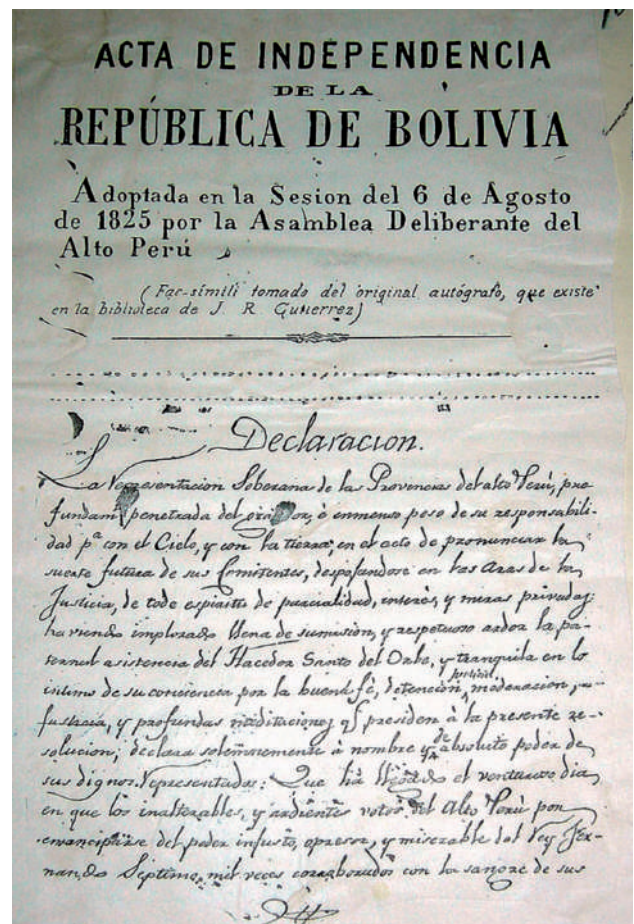 ACTA DE INDEPENDENCIA
DE LA
REPÚBLICA DE BOLIVIA
Adoptada en la Sesion del 6 de Agosto
de 1825 por la Asamblea Deliberante del
Alto Perú
(Fac-símili tomado del original autógrafo, que existe
en la biblioteca de J. R. Gutierrez)
Declaracion.
La representacion Soberana de las Provincias del alto Perú, pro
fundam penetrada del grandor, é inmenso peso de su responsabili-
dad pª con el Cielo, y con la tierra, en el acto de pronunciar la
suerte futura de sus Comitentes, despojandose en las Aras de la
Justicia, de todo espiritu de parcialidad, interés, y miras privadas;
haviendo implorado llena de sumision, y respetuoso ardor la pa-
ternal asistencia del Hacedor Santo del Orbe, y tranquila en lo
intimo de su conciencia por la buena fé, detencion, moderacion,
justicia, y profundas meditaciones qe presiden á la presente re-
solucion; declara solemnemente á nombre y de absoluto poder de
sus dignos representados: Que ha llegado el venturoso dia
en que los inalterables, y ardientes votos del Alto Perú por
emanciparse del poder injusto, opresor, y miserable del Rey Fer-
nando Septimo, mil veces corroborados con la sangre de sus